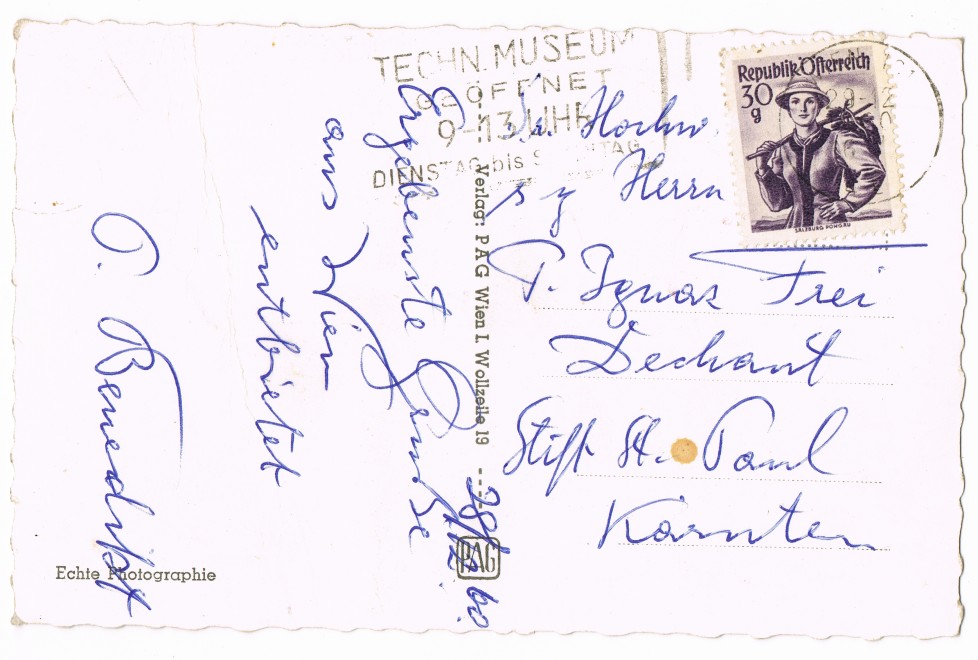 TECHN. MUSEUM
GEÖFFNET
9-13 UHR
DIENSTAG bis SONNTAG
Republik Österreich
30 g
SALZBURG PONGAU
Hochw.
Herrn
P. Ignaz Frei
Dechant
Stift St. Paul
Kärnten
28/12.60.
Ergebenste Grüße
aus Wien
entbietet
P. Benedikt
Verlag: PAG Wien I. Wollzeile 19
PAG
Echte Photographie